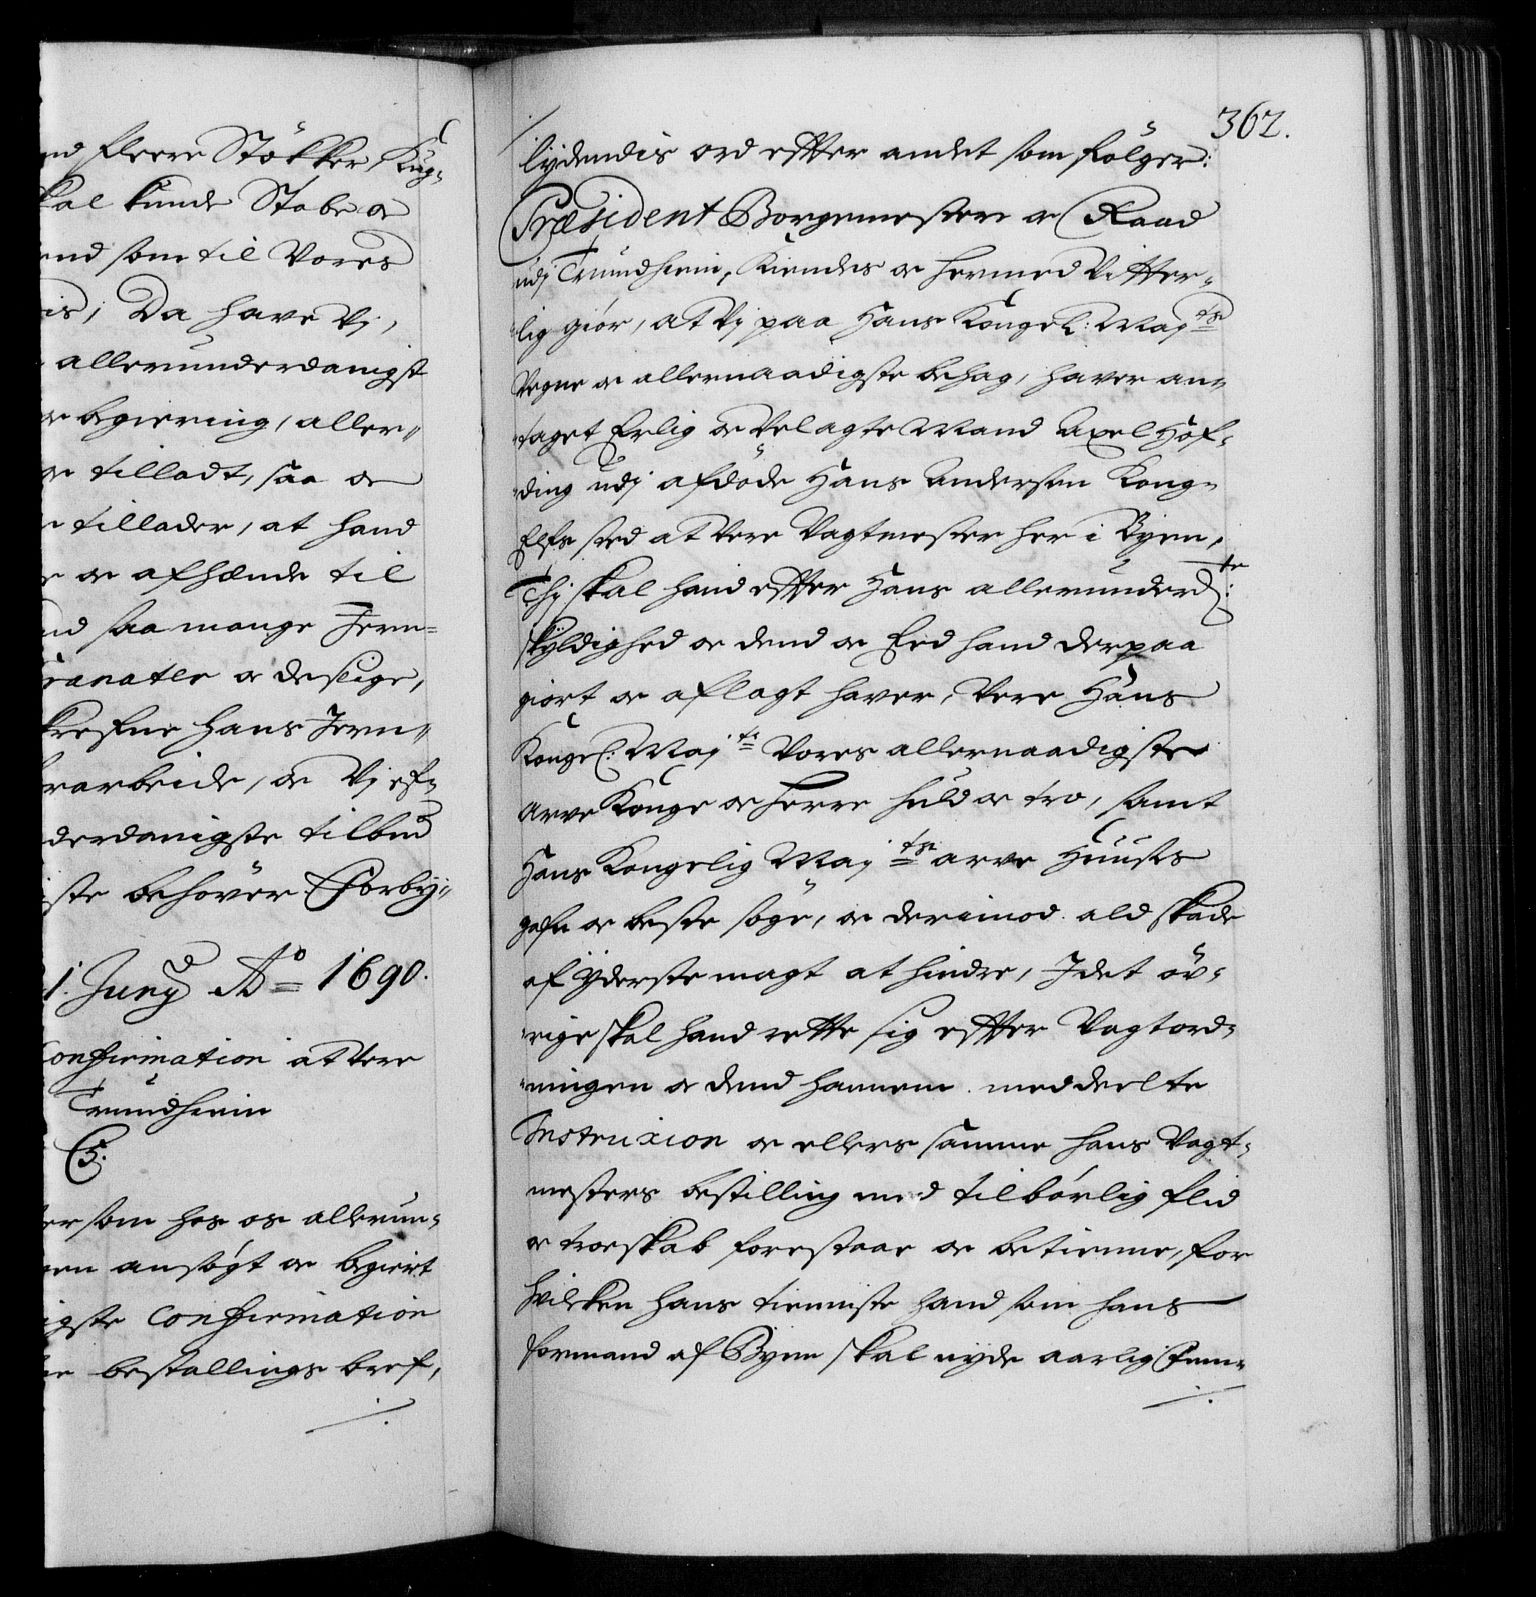 nd fleere Stökker, Kug-
kal kunde Stobe oc
end som til Vores
is, Da have Vj,
allerunderdanigst
oc begiering, aller-
oc tilladt, saa oc
tillader, at hand
oc afhænde til
nd saa mange Jern-
ranater oc deslige,
krefne hans Jern-
rarbeide, oc Vj ef-
derdanigste tilbud
iste behöver. Forby-
1. Junij Ao 1690.
Confirmation at Vere
Trundhiem
G:
er som hos os allerun-
en ansögt oc begiert
igste Confirmation
bestallings bref,
362.
lÿdendis ord effter andet som fölger:
Præsident Borgemestere oc Raad
udj Trundhiem, Kiendes oc hermed Vitter-
lig giör, at Vj paa Hans Kongel: Maj:ts
Vegne oc allernaadigste behag, haver an-
taget Erlig oc Velagte Mand Axel Höf-
ding udj afdöde Hans Andersen Kong-
Elfs sted at Vere Vagtmester her i Byen,
Thj skal hand effter Hans allerunderd:te
skÿldighed oc dend oc Eed hand derpaa
giort oc aflagt haver, Vere Hans
Kongel: Maj:t Vores allernaadigste
Arve Konge oc Herre huld oc tro, samt
Hans Kongelig Maj:ts arve Huuses
gafn oc beste söge, oc derimod ald skade
af ÿderste magt at hindre, J det öv-
rige skal hand rette sig effter Vagtord-
ningen oc dend hannem meddeelte
Instruxion oc ellers samme hans Vagt-
mesters bestilling med tilbörlig flid
oc troeskab forestaae oc betienne, for
hvilken hans tienniste hand som hans
formand af Byen skal nyde aarlig Fem-